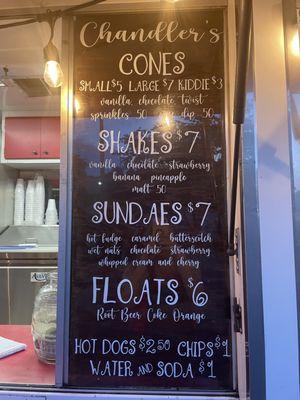 Chandler's
CONES
SMALL $5 LARGE $7 KIDDIE $3
vanilla, chocolate, twist
sprinkles 50 dip 50
SHAKES $7
vanilla chocolate strawberry
banana pineapple
malt 50
SUNDAES $7
hot fudge caramel butterscotch
wet nuts chocolate strawberry
whipped cream and cherry
FLOATS $6
Root Beer Coke Orange
HOT DOGS $2.50 CHIPS $1
WATER AND SODA $1